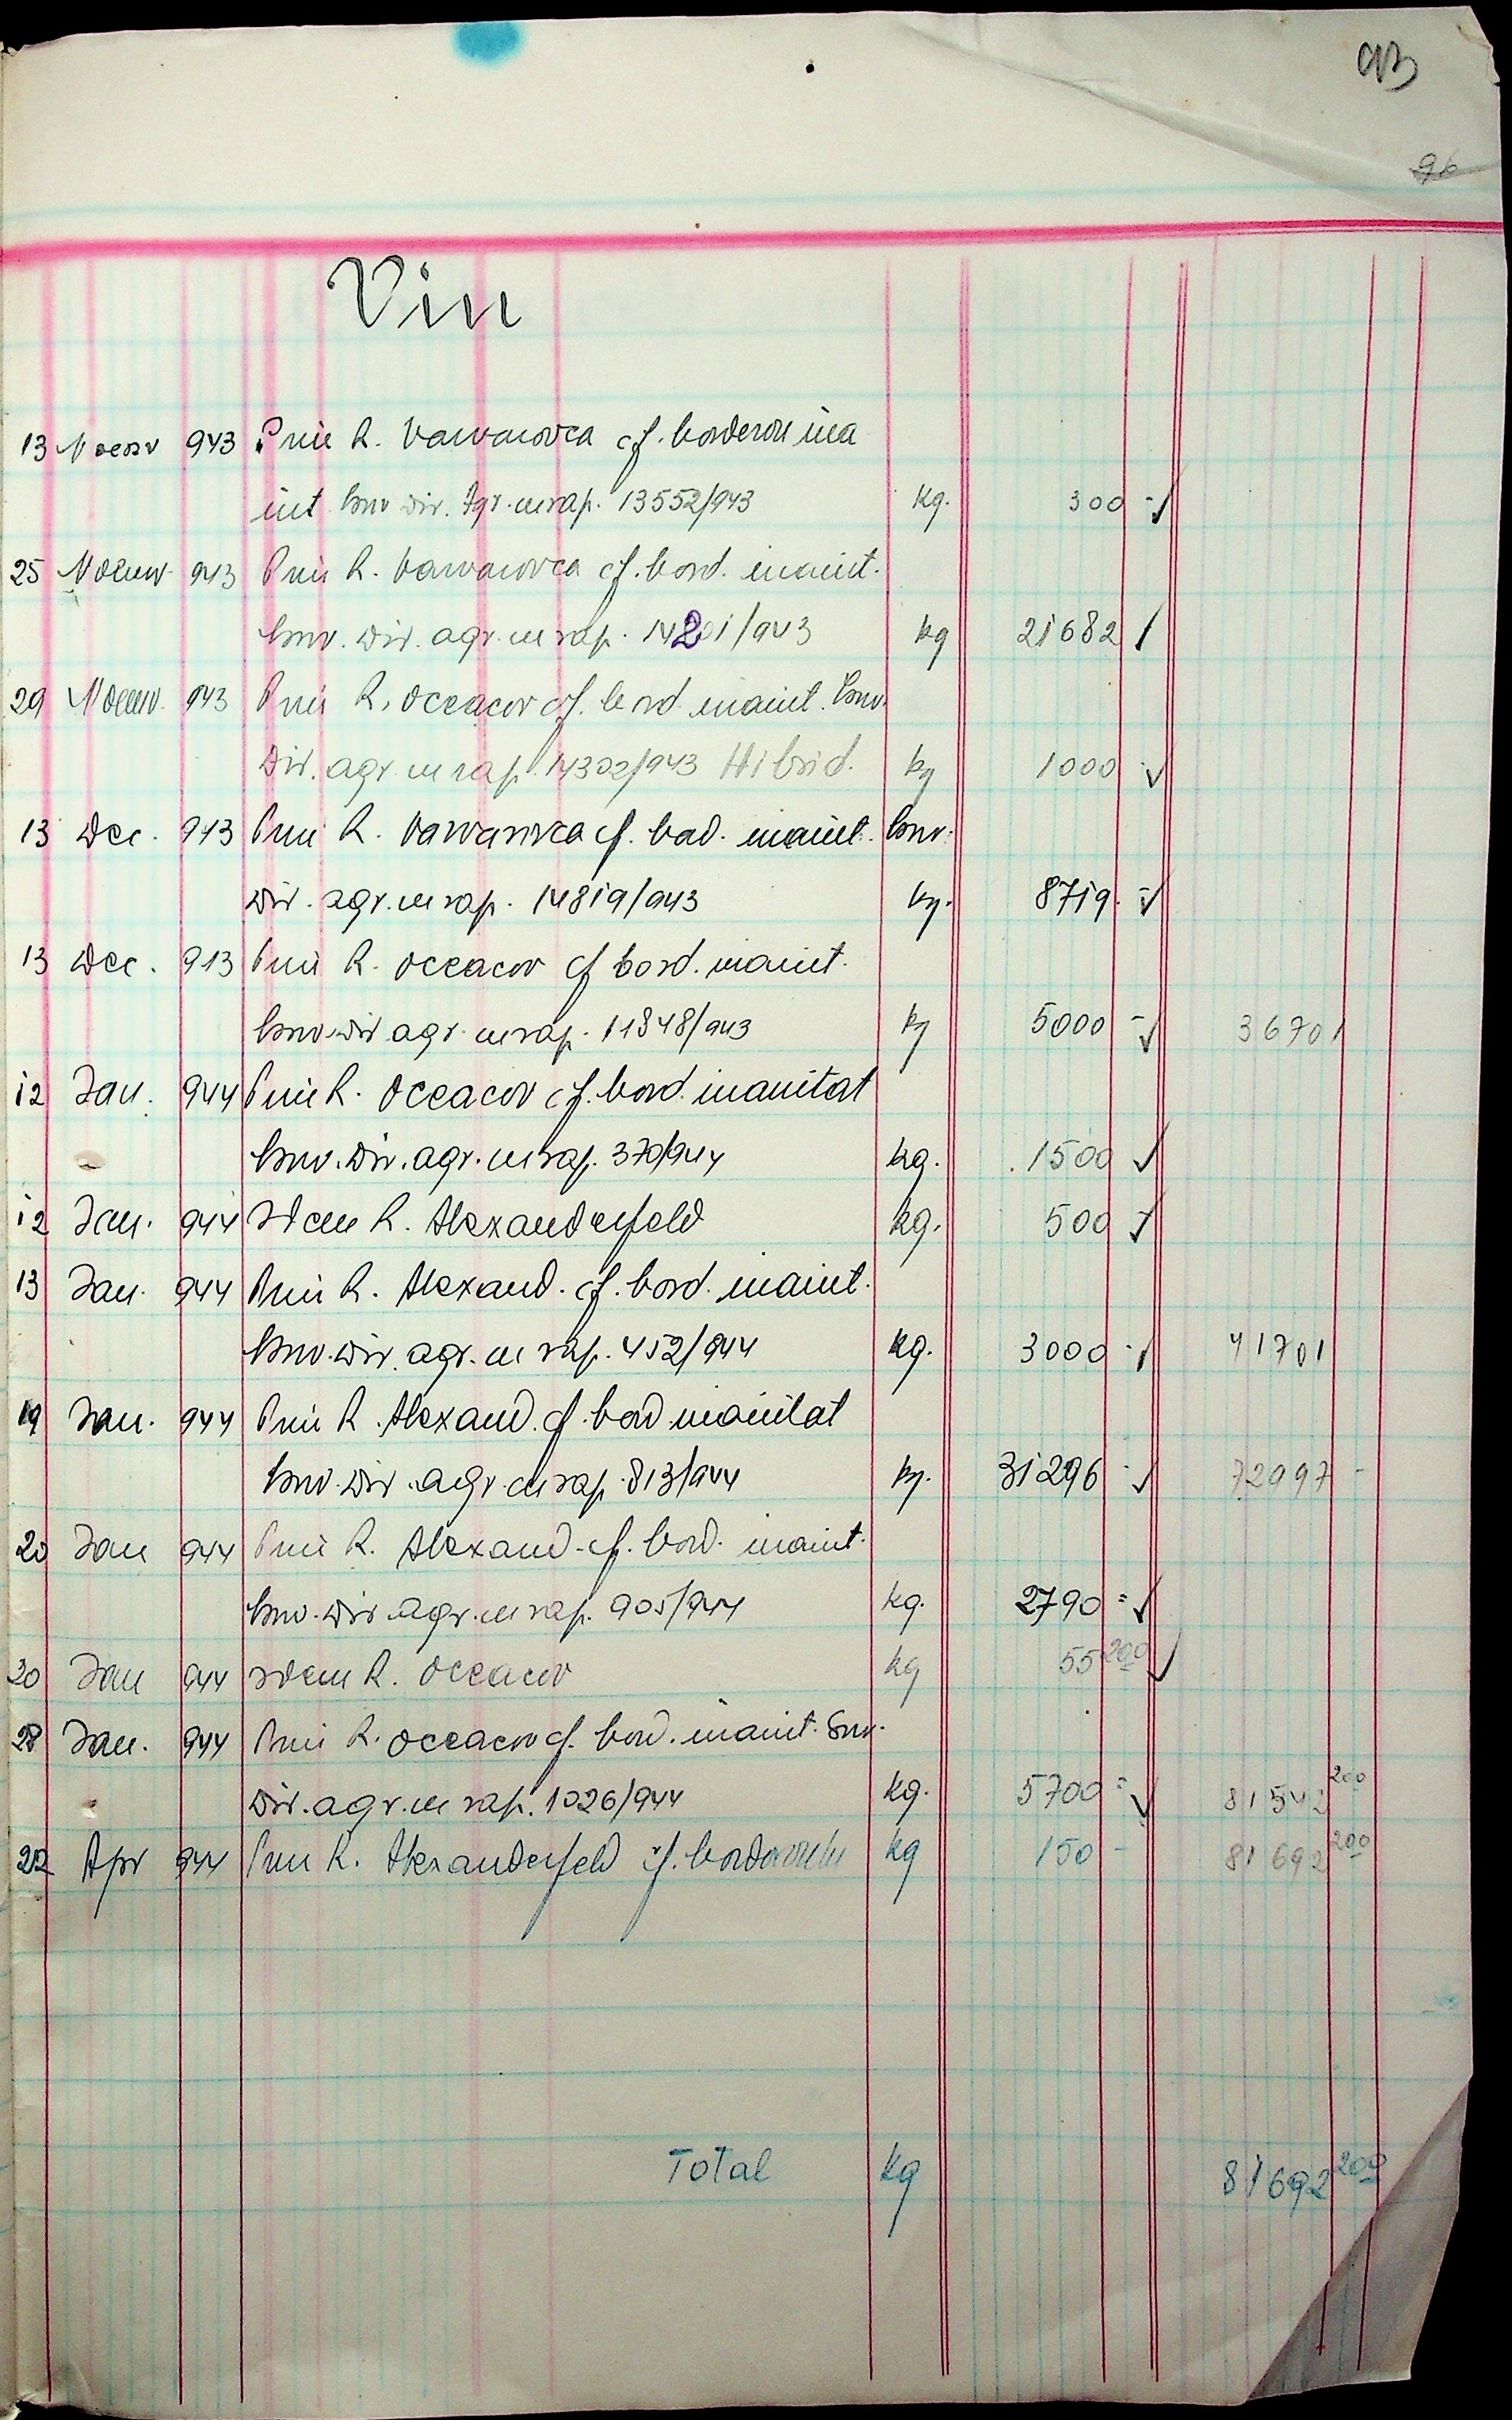 93
96
Vin
13 Noemv 943 Prin R. Varvarovca cf. borderou ina
int. Snv Dir. Agr. cu rap. 13552/943 kg. 300 -
25 Noemv 943 Prin R. Varvarovca cf. bord. inaint.
Snv. Dir. agr. cu rap. 14201/943 kg 21682
29 Noemv. 943 Prin R. Oceacov cf. bord. inaint. Snv.
Dir. agr. cu rap. 14302/943 Hibrid. kg 1000 -
13 Dec. 943 Prin R. Varvarovca cf. bod. inaint. Snv.
Dir. agr. cu rap. 14819/943 kg. 8719 -
13 Dec. 943 Prin R. Oceacov cf bord. inaint.
Snv. Dir agr. cu rap. 11848/943 kg 5000 - 36701
12 Ian. 944 Prin R. Oceacov cf. bord. inaintat
Snv. Dir. agr. cu rap. 370/944 kg. 1500
12 Ian. 944 Idem R. Alexanderfeld kg. 500 -
13 Ian. 944 Prin R. Alexand. cf. bord. inaint.
Snv. Dir. agr. cu rap. 452/944 kg. 3000 - 41701
19 Ian. 944 Prin R. Alexand. cf. bord inaintat
Snv. Dir. agr. cu rap. 813/944 kg. 31296 - 72997 -
20 Ian 944 Prin R. Alexand. cf. bord. inaint.
Snv. Dir agr. cu rap. 905/944 kg. 2790 -
20 Ian 944 Idem R. Oceacov kg 55 200
28 Ian. 944 Prin R. Oceacov cf. bord. inaint. Snv.
Dir. agr. cu rap. 1026/944 kg. 5700 - 81542 200
22 Apr 944 Prin R. Alexanderfeld cf. kg 150 - 81692 200
Total kg 81692 200